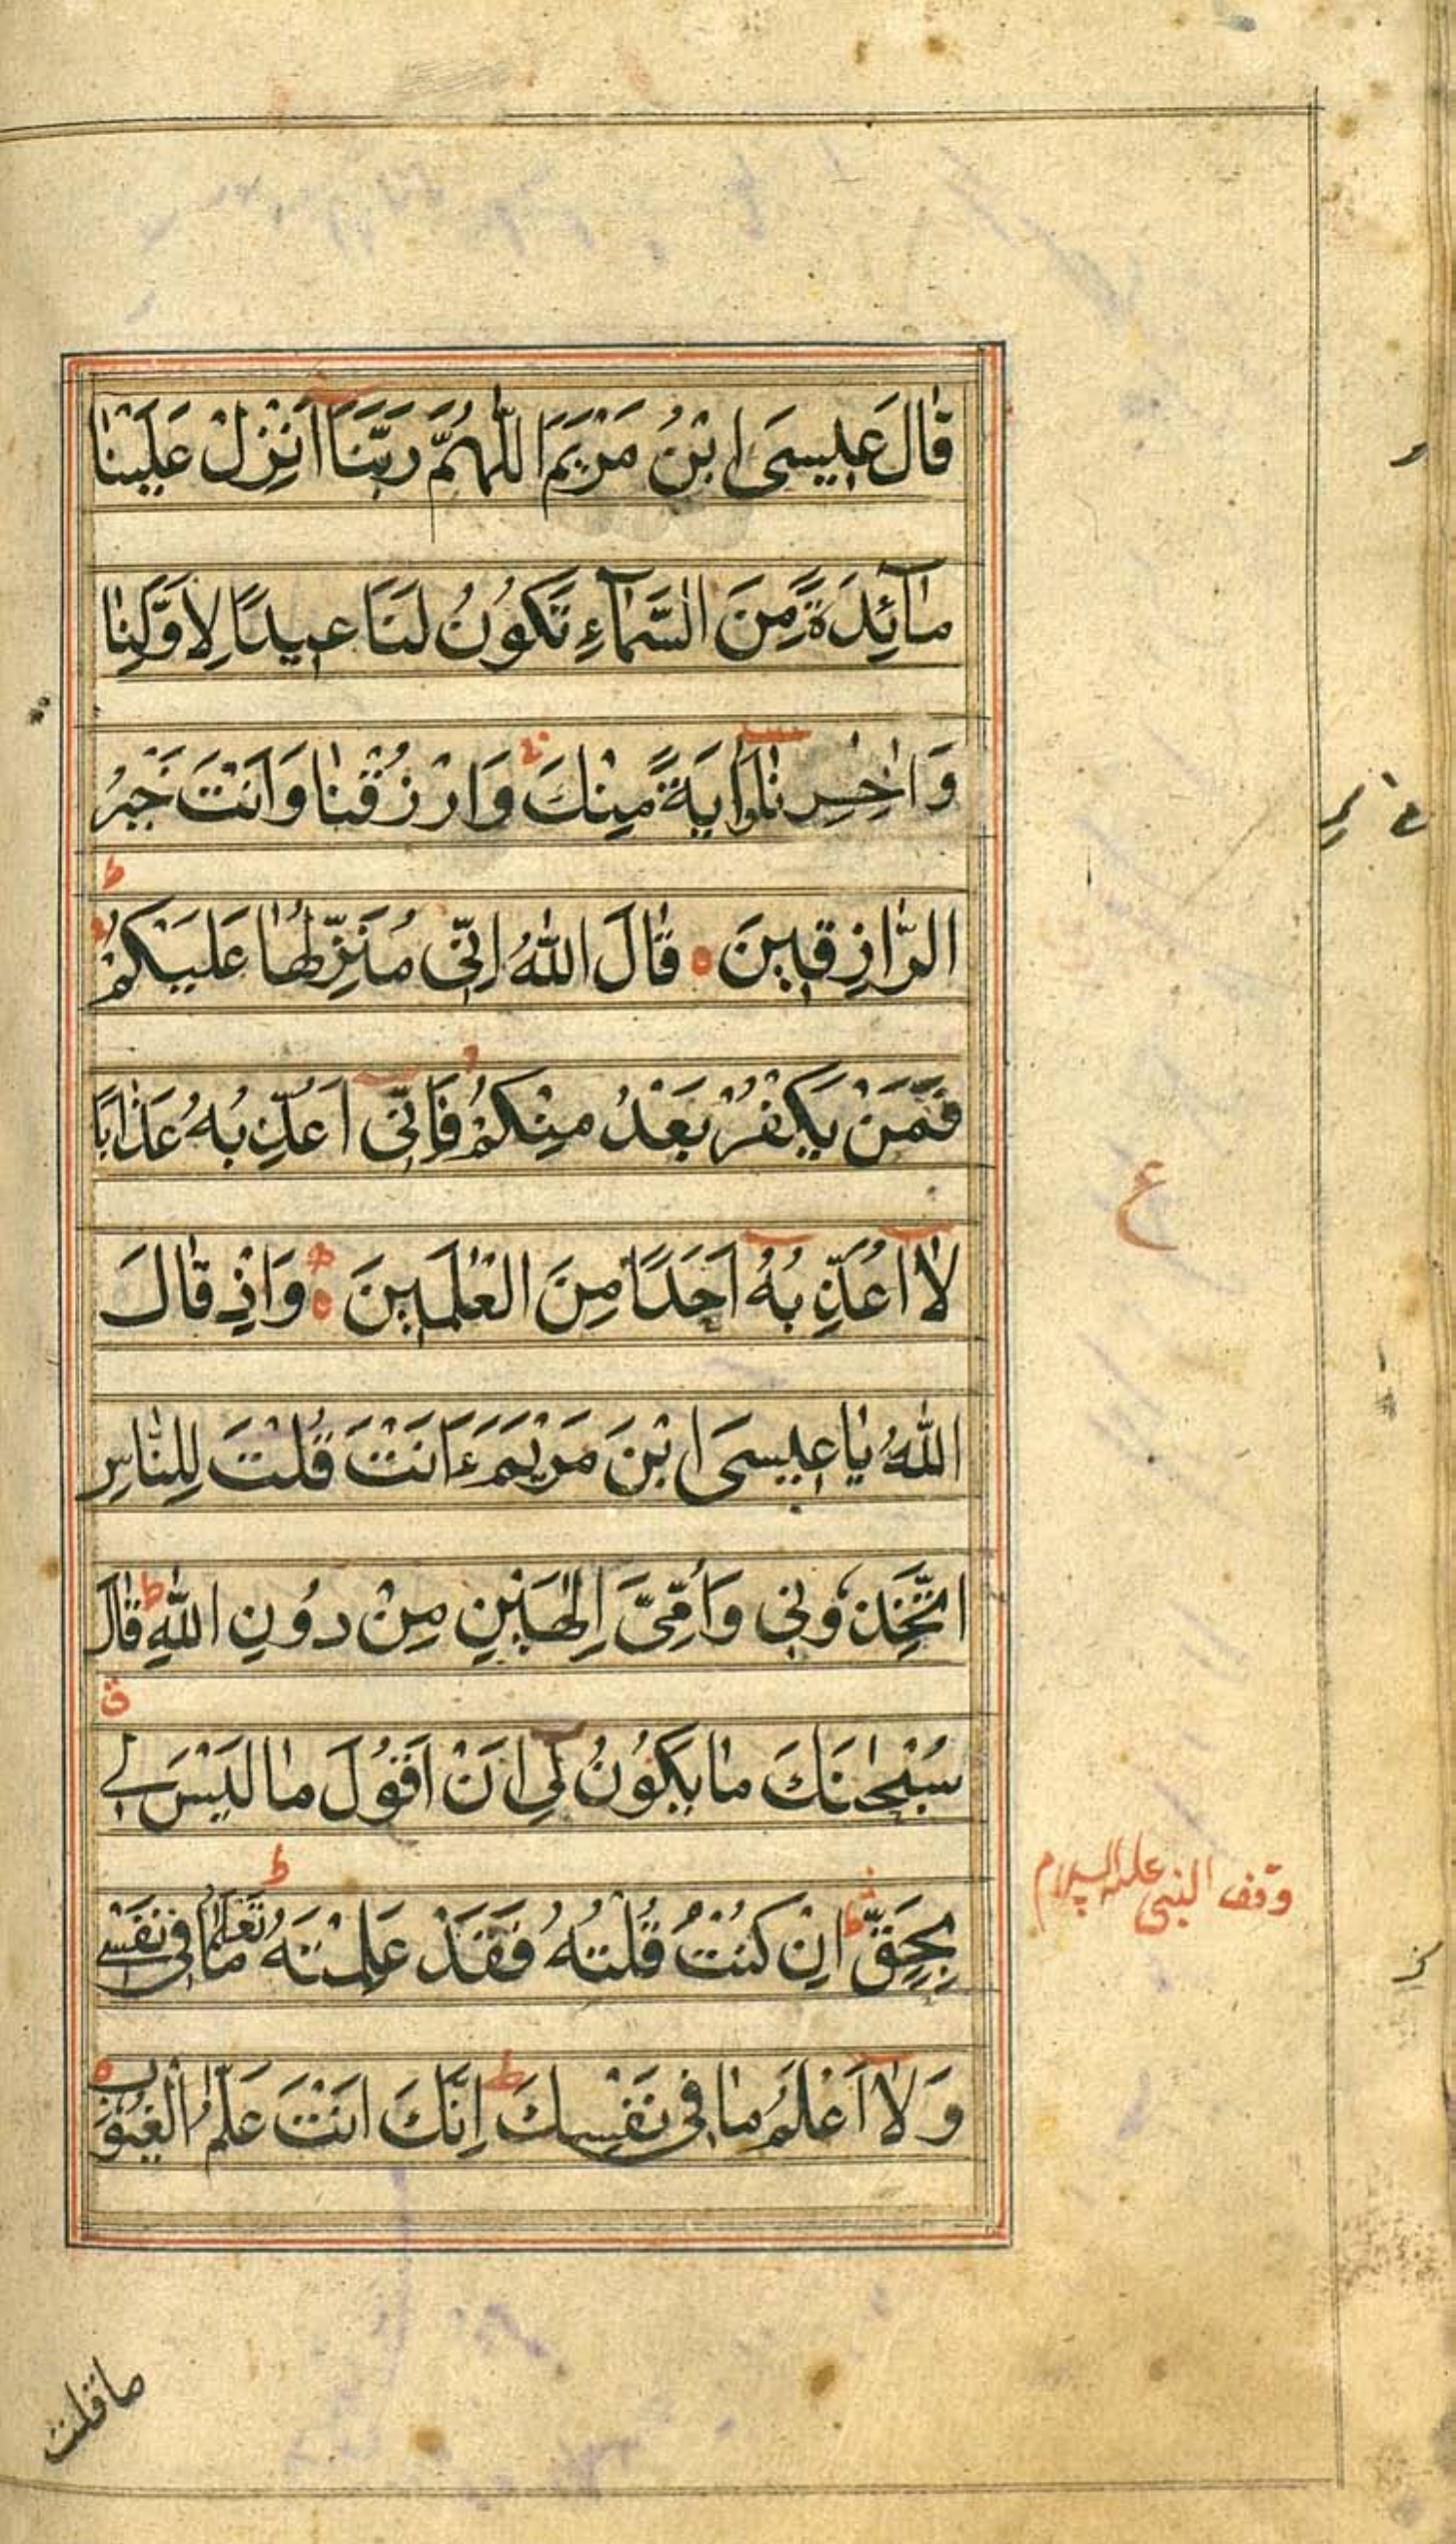 قَالَ عِيسَى ابْنُ مَرْيَمَ اللّٰهُمَّ رَبَّنَا اَنْزِلْ عَلَيْنَا
مَآئِدَةً مِنَ السَّمَآءِ تَكُونُ لَنَا عِيدًا لِاَوَّلِنَا
وَاٰخِرِنَا وَاٰيَةً مِنْكَ وَارْزُقْنَا وَاَنْتَ خَيْرُ
الرَّازِقِينَ ه قَالَ اللّٰهُ اِنِّى مُنَزِّلُهَا عَلَيْكُمْ
فَمَنْ يَكْفُرْ بَعْدُ مِنْكُمْ فَاِنِّى اُعَذِّبُهُ عَذَابًا
لَا اُعَذِّبُهُ اَحَدًا مِنَ الْعٰلَمِينَ ه وَاِذْ قَالَ
اللّٰهُ يَا عِيسَى ابْنَ مَرْيَمَ ءَاَنْتَ قُلْتَ لِلنَّاسِ
اتَّخِذُونِى وَاُمِّىَ اِلٰهَيْنِ مِنْ دُونِ اللّٰهِ ط قَالَ
سُبْحٰنَكَ مَا يَكُونُ لِى اَنْ اَقُولَ مَا لَيْسَ لِى
بِحَقٍّ ط اِنْ كُنْتُ قُلْتُهُ فَقَدْ عَلِمْتَهُ ط تَعْلَمُ مَا فِى نَفْسِى
وَلَا اَعْلَمُ مَا فِى نَفْسِكَ ط اِنَّكَ اَنْتَ عَلَّٰمُ الْغُيُوبِ ه
ع
وقف النبى عليه السلام
ما قلت